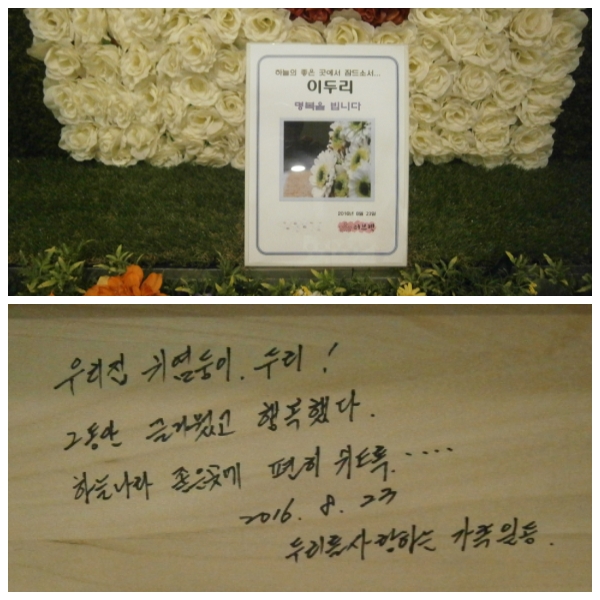 하늘의 좋은 곳에서 잠드소서...
이두리
명복을 빕니다
2016년 8월 23일
우리집 귀염둥이. 두리!
그동안 즐거웠고 행복했다.
하늘나라 좋은곳에 편히 쉬도록.....
2016. 8. 23
두리를사랑하는 가족일동.